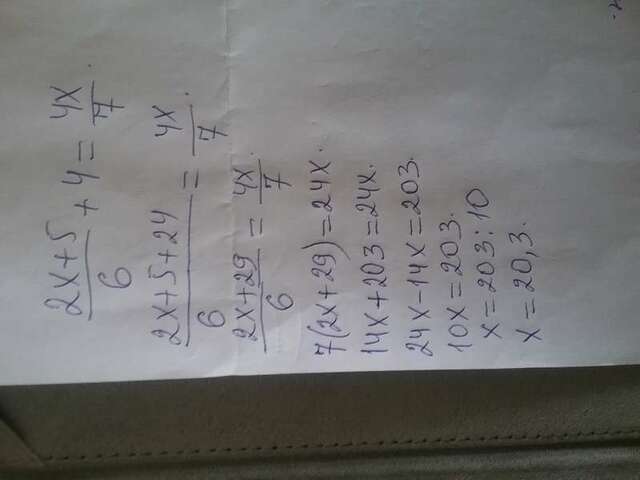 (2x+5)/6 + 4 = 4x/7.
(2x+5+24)/6 = 4x/7.
(2x+29)/6 = 4x/7.
7(2x+29)=24x.
14x+203=24x.
24x-14x=203.
10x=203.
x=203:10
x=20,3.